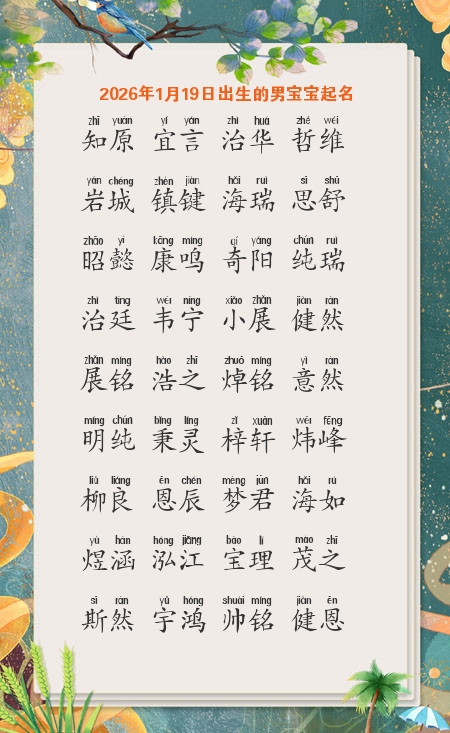 2026年1月19日出生的男宝宝起名
zhī yuán yí yán zhì huá zhé wéi
知原 宜言 治华 哲维
yán chéng zhèn jiàn hǎi ruì sī shū
岩城 镇键 海瑞 思舒
zhāo yì kāng míng qí yáng chún ruì
昭懿 康鸣 奇阳 纯瑞
zhì tíng wéi níng xiǎo zhǎn jiàn rán
治廷 韦宁 小展 健然
zhǎn míng hào zhī zhuō míng yì rán
展铭 浩之 焯铭 意然
míng chún bǐng líng zǐ xuān wěi fēng
明纯 秉灵 梓轩 炜峰
liǔ liáng ēn chén mèng jūn hǎi rú
柳良 恩辰 梦君 海如
yù hán hóng jiāng bǎo lǐ mào zhī
煜涵 泓江 宝理 茂之
sī rán yǔ hóng shuài míng jiàn ēn
斯然 宇鸿 帅铭 健恩